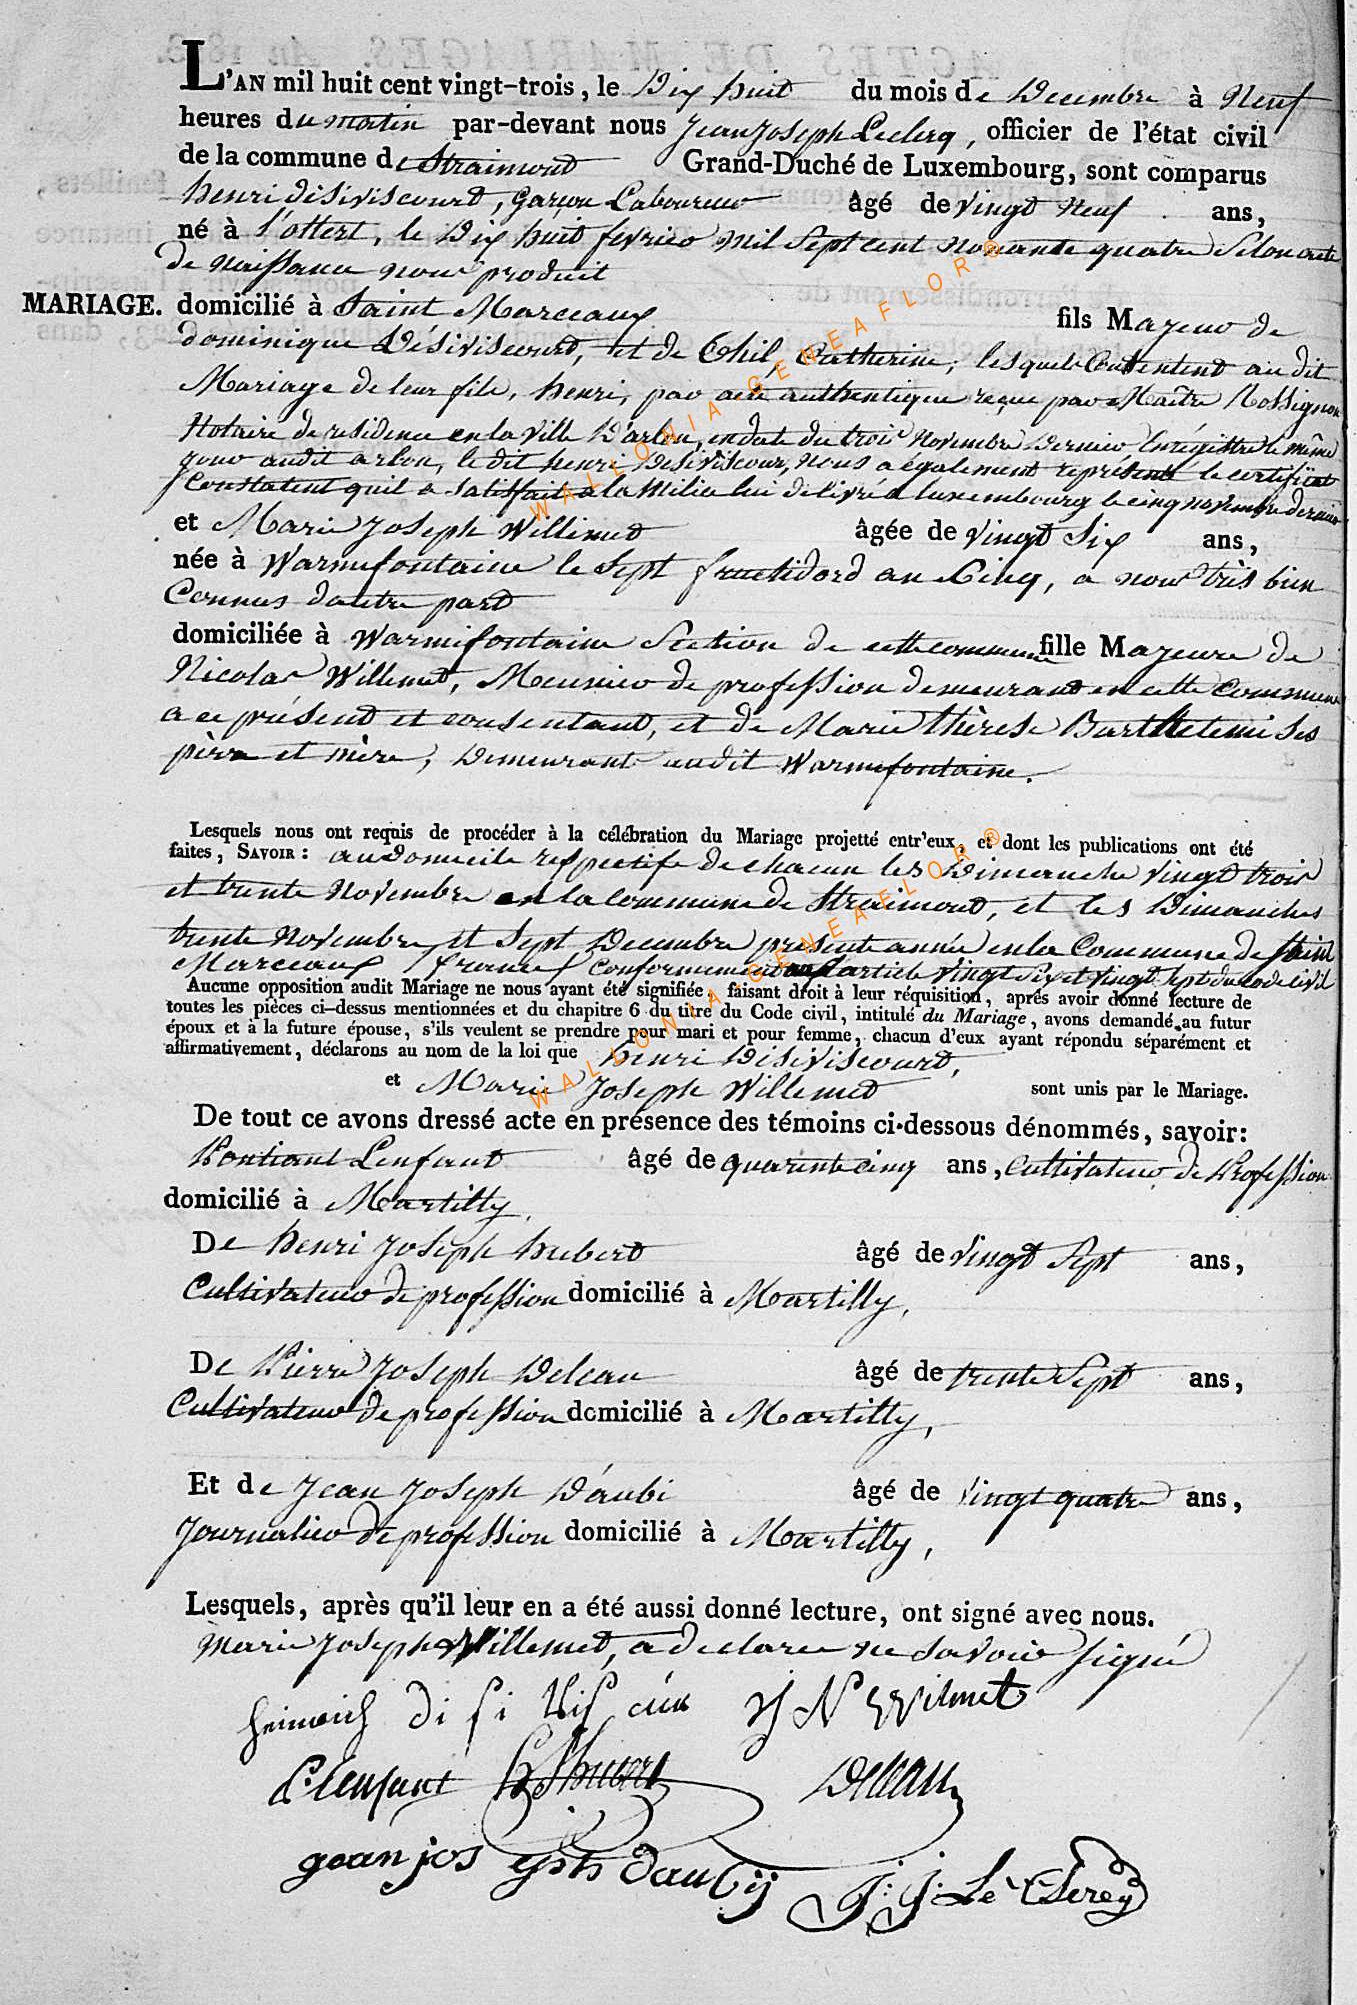 L'AN mil huit cent vingt-trois, le Dix huit du mois de Decembre à Neuf
heures du matin par-devant nous Jean Joseph Leclerq, officier de l'état civil
de la commune de Straimont Grand-Duché de Luxembourg, sont comparus
henri disiviscourt, Garçon Laboureur âgé de vingt Neuf ans,
né à l'ottert, le Dix huit fevrier mil Sept cent nonante quatre Selon acte
de naissance nous produit
MARIAGE. domicilié à Saint Marceaux fils Majeur de
dominique Désiviscourt, et de Thil, Catherine, lesquels Consentent au dit
Mariage de leur fils, henri, par acte authentique reçue par Maître Rossignon
Notaire de residence en la ville D'arlon, en date du trois Novembre Dernier Enrégistré le même
jour audit arlon, le dit henri Desiviscour, nous a également représenté le certificat
Constatent quil a satisfait a la Milice lui délivré a luxembourg le cinq novembre dernier
et Marie Joseph Willemet âgée de vingt Six ans,
née à Warmifontaine le Sept fructidord an Cinq, a nous très bien
Connus dautre part
domiciliée à Warmifontaine Section de cette commune fille Majeure de
Nicolas Willemet, Meunier de profession demeurant en cette Commune
a ce présent et consentant, et de Marie thérèse Barthelemi Ses
père et mère, Demeurant audit Warmifontaine.
Lesquels nous ont requis de procéder à la célébration du Mariage projetté entr'eux, et dont les publications ont été
faites, SAVOIR : au domicile respectife de chacun les Dimanche vingt trois
et trente Novembre en la Commune de Straimont, et les Dimanches
trente Novembre et Sept Decembre présente année en la Commune de Saint
Marceaux france Conformement aux article vingt Six et vingt Sept du code civil
Aucune opposition audit Mariage ne nous ayant été signifiée, faisant droit à leur réquisition, aprés avoir donné lecture de
toutes les pièces ci-dessus mentionnées et du chapitre 6 du titre du Code civil, intitulé du Mariage, avons demandé au futur
époux et à la future épouse, s'ils veulent se prendre pour mari et pour femme, chacun d'eux ayant répondu séparément et
affirmativement, déclarons au nom de la loi que henri Disiviscourt,
et Marie Joseph Willemet sont unis par le Mariage.
De tout ce avons dressé acte en présence des témoins ci-dessous dénommés, savoir:
Pontiant Lenfant âgé de quarente cinq ans, Cultivateur de Profession
domicilié à Martilly,
De henri Joseph hubert âgé de vingt Sept ans,
Cultivateur de profession domicilié à Martilly,
De Pierre Joseph Deleau âgé de trente Sept ans,
Cultivateur de profession domicilié à Martilly,
Et de Jean Joseph D'aubi âgé de vingt quatre ans,
Journalier de profession domicilié à Martilly,
Lesquels, après qu'il leur en a été aussi donné lecture, ont signé avec nous.
Marie Joseph Willemet, a declaree ne Savoir Signé
heinrich di si vis cür N Wilmet
P lenfant h J hubert Deleau
geanjos ephs daubij J: J: Le Clercq
WALLONIA-GENEAFLOR®
WALLONIA-GENEAFLOR®